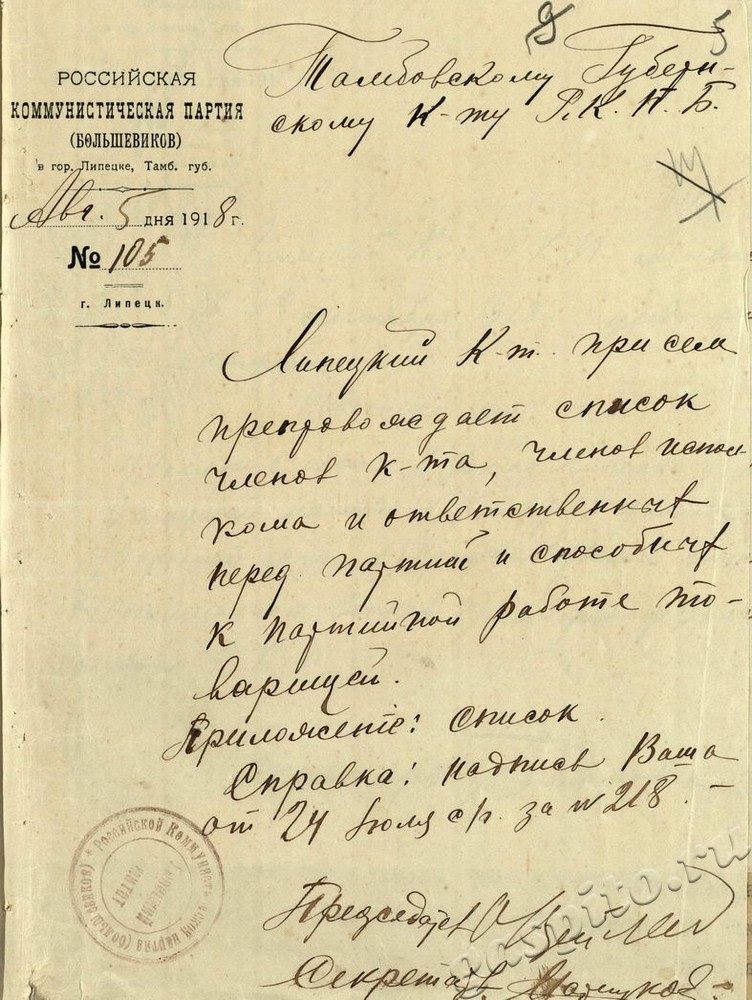 9
5
РОССИЙСКАЯ
КОММУНИСТИЧЕСКАЯ ПАРТИЯ
(БОЛЬШЕВИКОВ)
в гор. Липецке, Тамб. губ.
Авг. 5 дня 1918 г.
№ 105
г. Липецк.
Тамбовскому Губерн-
скому К-ту Р.К.П.Б.
Липецкий К-т. при сем
препровождает список
членов К-та, членов испол-
кома и ответственных
перед партией и способных
к партийной работе то-
варищей.
Приложение: список.
Справка: надпись Ваша
от 24 июля с/г. за № 218. –
Российской Коммунистической партии (большевиков) *
Председатель
Секретарь